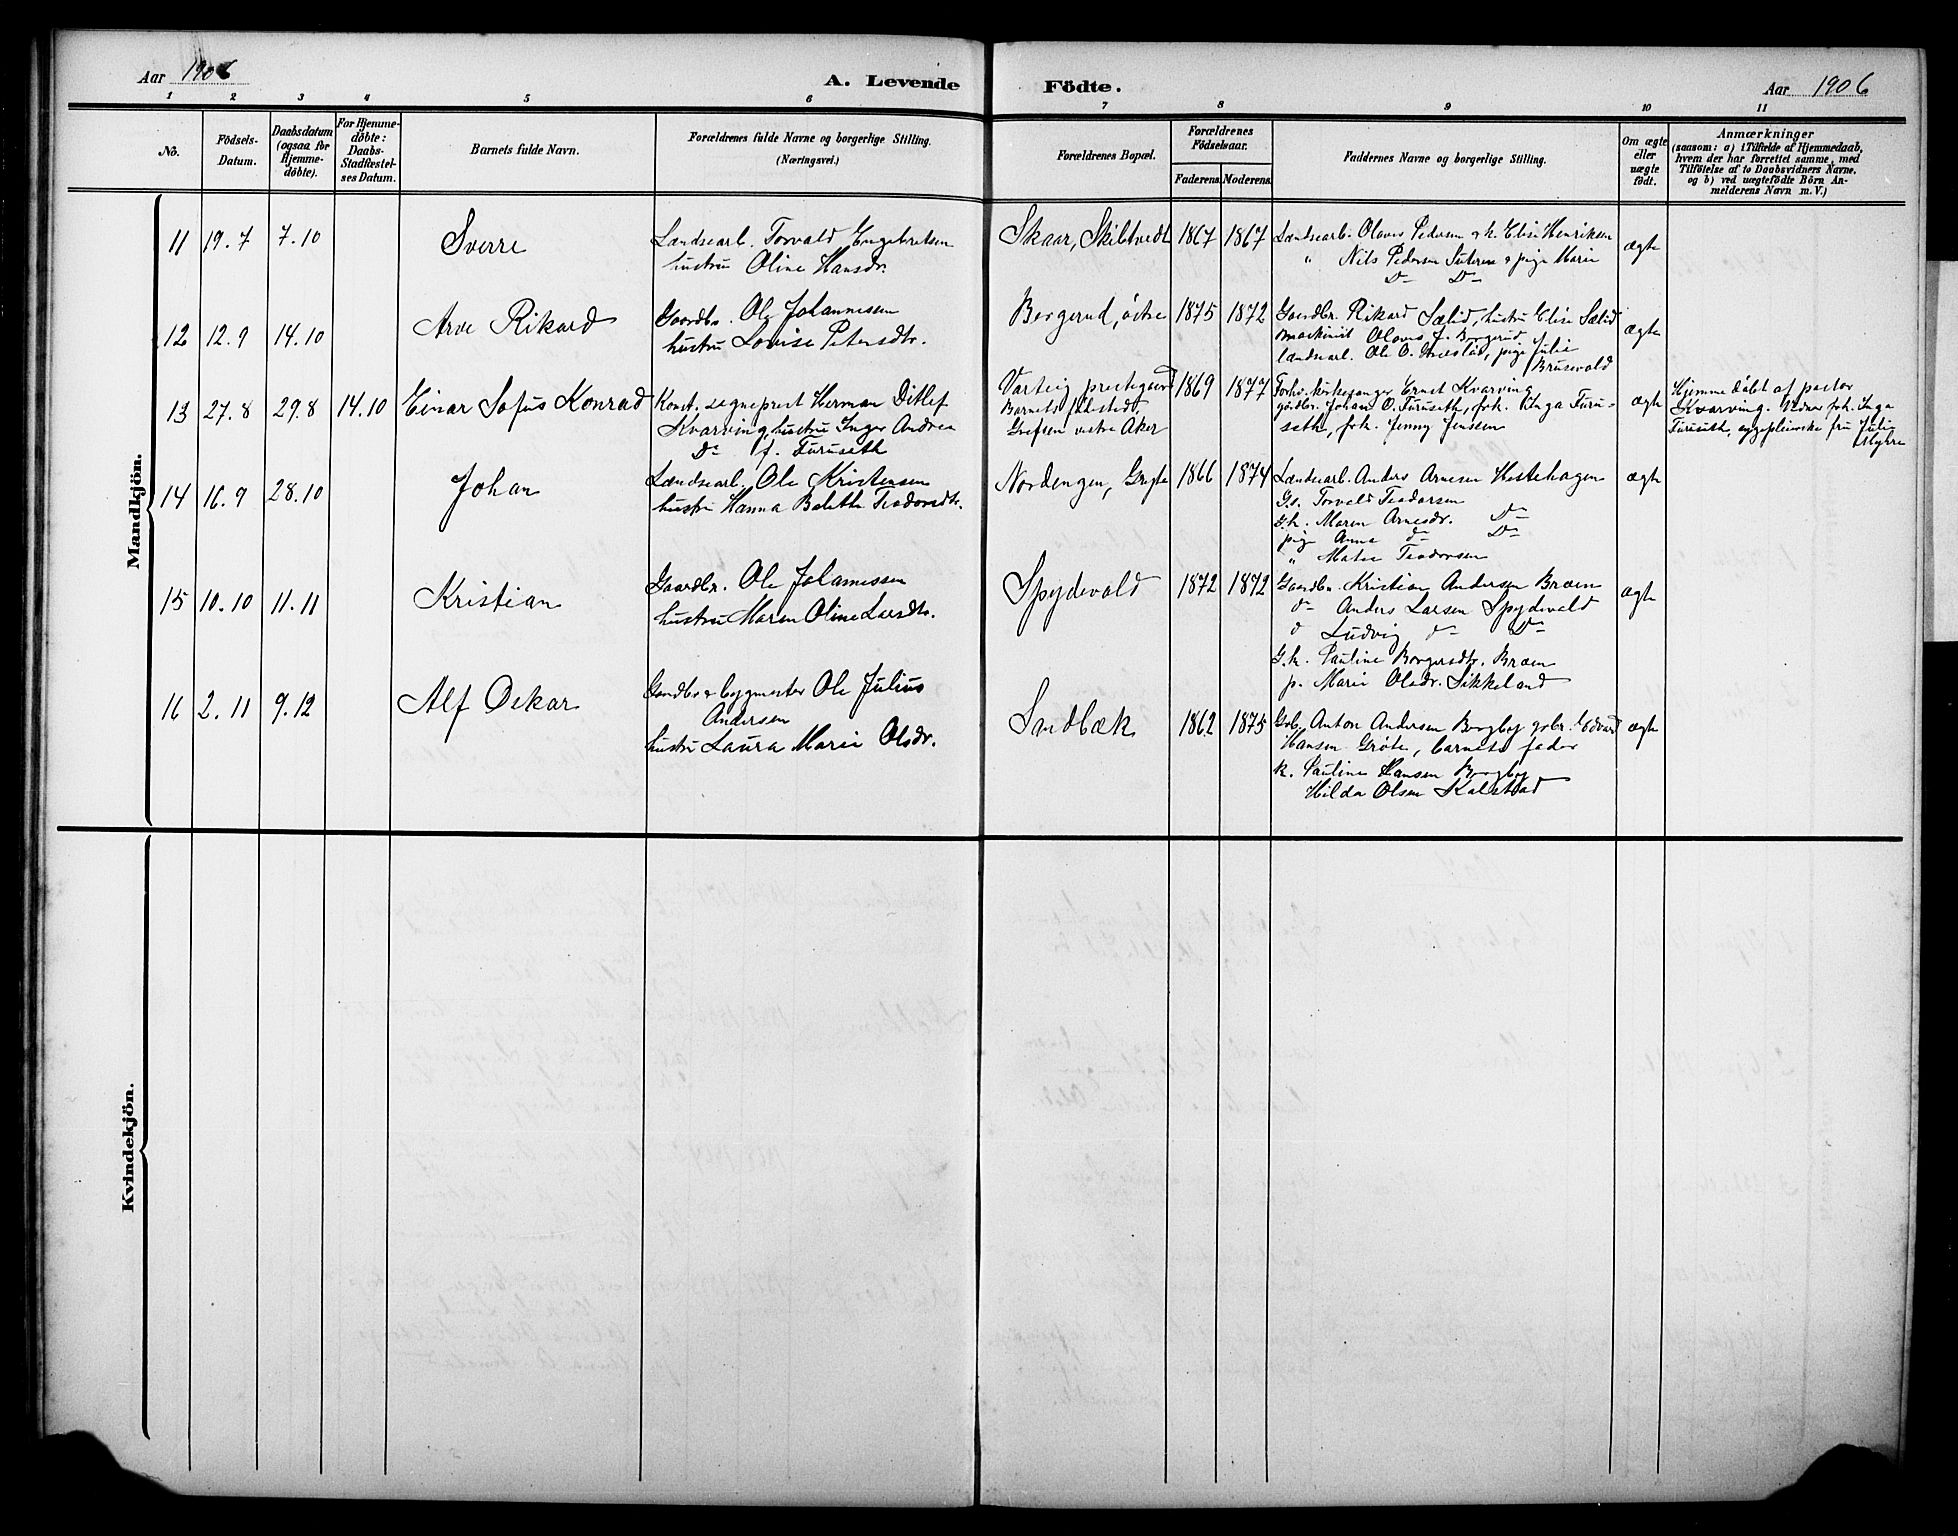 Aar 1906
A. Levende Födte.
Aar 1906
1 2 3 4 5 6 7 8 9 10 11
No.
Födsels-Datum.
Daabsdatum (ogsaa for Hjemme-döbte).
For Hjemme-döbte: Daabs-Stadfæstel-ses Datum.
Barnets fulde Navn.
Forældrenes fulde Navne og borgerlige Stilling.
(Næringsvei.)
Forældrenes Bopæl.
Forældrenes Födselsaar.
Faderens. Moderens.
Faddernes Navne og borgerlige Stilling.
Om ægte eller uægte födt.
Anmærkninger
(saasom: a) i Tilfælde af Hjemmedaab,
hvem der har forrettet samme, med
Tilföielse af to Daabsvidners Navne.
og b) ved uægtefödte Börn An-
melderens Navn m. V.)
Mandkjön.
11 19.7 7.10 Sverre
Landsearb. Torvald Engebretsen
hustru Oline Hansdr.
Skaar, Skibtvedt 1867 1867
Landsearb. Olaves Pedersen & h. Elise Henriksen
" Nils Pedersen & pige Marie
D- D-
ægte
12 12.9 14.10 Arve Rikard
Gaardbr. Ole Johannesen
hustru Lovise Petersdtr.
Borgerud, östre 1875 1872
Gaardbr. Rikard Sælid, hustru Elise Sælid
maskinist Olaves J. Borgerud
landsearb. Ole O. pige Julie
Brusevold
ægte
13 27.8 29.8 14.10 Einar Sofus Konrad
Konst. sogneprest Herman Ditlef
Kvarving, hustru Inger Andrea
D- f. Furuseth
Varteig prestegaard
Barnets födested,
Grefsen vestre Aker
1869 1877
Forhv. kirkesanger Ernst Kvarving
gaardbr. Johan O. Furuseth, frk. Inga Furu-
seth, frk. Jenny Jenssen
ægte
Hjemmedöbt af pastor
Kvarving. Vidner frk. Inga
Furuseth, sygepleierske fru Julie
Myhre
14 16.9 28.10 Johan
Landsearb. Ole Kristensen
hustru Hanna Bolette Teodorsdtr.
Nordengen, 1866 1874
Landsearb. Anders Arnesen Hestehagen
G.s. Torvald Teodorsen
G.k. Maren Arnesdr. D-
pige Anna d- D-
" Teodorsen
ægte
15 10.10 11.11 Kristian
Gaardbr. Ole Johannessen
hustru Maren Oline Larsdtr.
Spydevold 1872 1872
Gaardbr. Kristian Andersen Braten
d- Anders Larsen Spydevold
d Ludvig d- D-
G.k. Pauline Borgersdtr. Braten
p. Marie Olsdr. Sikkeland
ægte
16 2.11 9.12 Alf Oskar
Gaardbr & bygmester Ole Julius
Andersen
hustru Laura Marie Olsdr.
Sandbæk 1862 1875
Gbr. Anton Andersen Borgby gbr. Edvard
Hansen Gröte, barnets fader
k. Pauline Hansen Borgby
Hilda Olsen Kolstad
ægte
Kvindekjön.